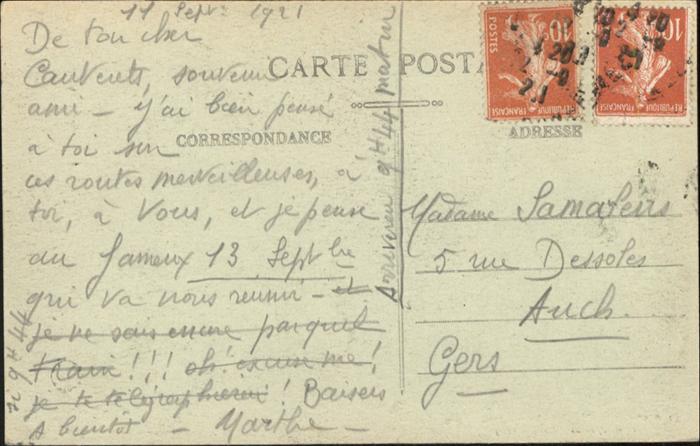 11 Sept. 1921
De ton cher
Cauterets, souvenir
ami - j'ai bien pensé
à toi sur
ces routes merveilleuses, à
toi, à Vous, et je pense
au fameux 13 Septbre
qui va nous réunir - et
je ne sais encore par quel
train !!! oh! excuse me!
je te télégraphierai! Baisers
A bientôt - Marthe -
9H44
Arriverai 9H44 matin
CARTE POSTALE
CORRESPONDANCE
ADRESSE
POSTES
10c
REPUBLIQUE FRANÇAISE
10c
REPUBLIQUE FRANÇAISE
Madame
5 rue Dessoles
Auch.
Gers